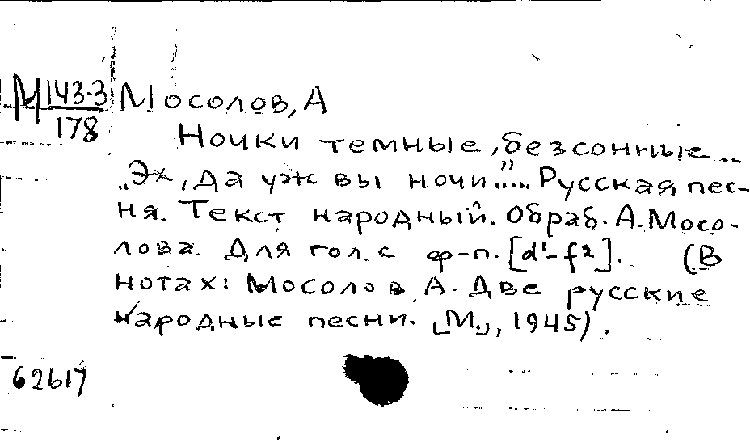 М 143-3 Мосолов, А
178
Ночки темные, безсонные...
„Эх, да уж вы ночи"... Русская пес-
ня. Текст народный. Обраб. А. Мосо-
лова. Для гол. с ф-п. [d¹-f²]. (В
нотах: Мосолов, А. Две русские
народные песни. [М.], 1945).
62617